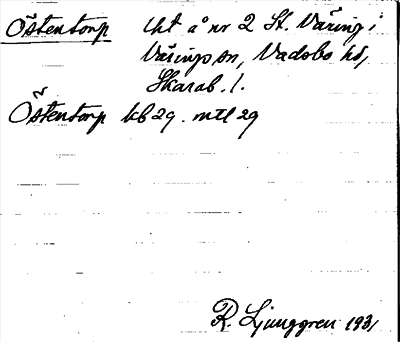 Östentorp lht å nr 2 St. Väring i
Värings sn, Vadsbo hd,
Skarab. l.
Östentorp kb 29. mtl 29
R. Ljunggren 1931